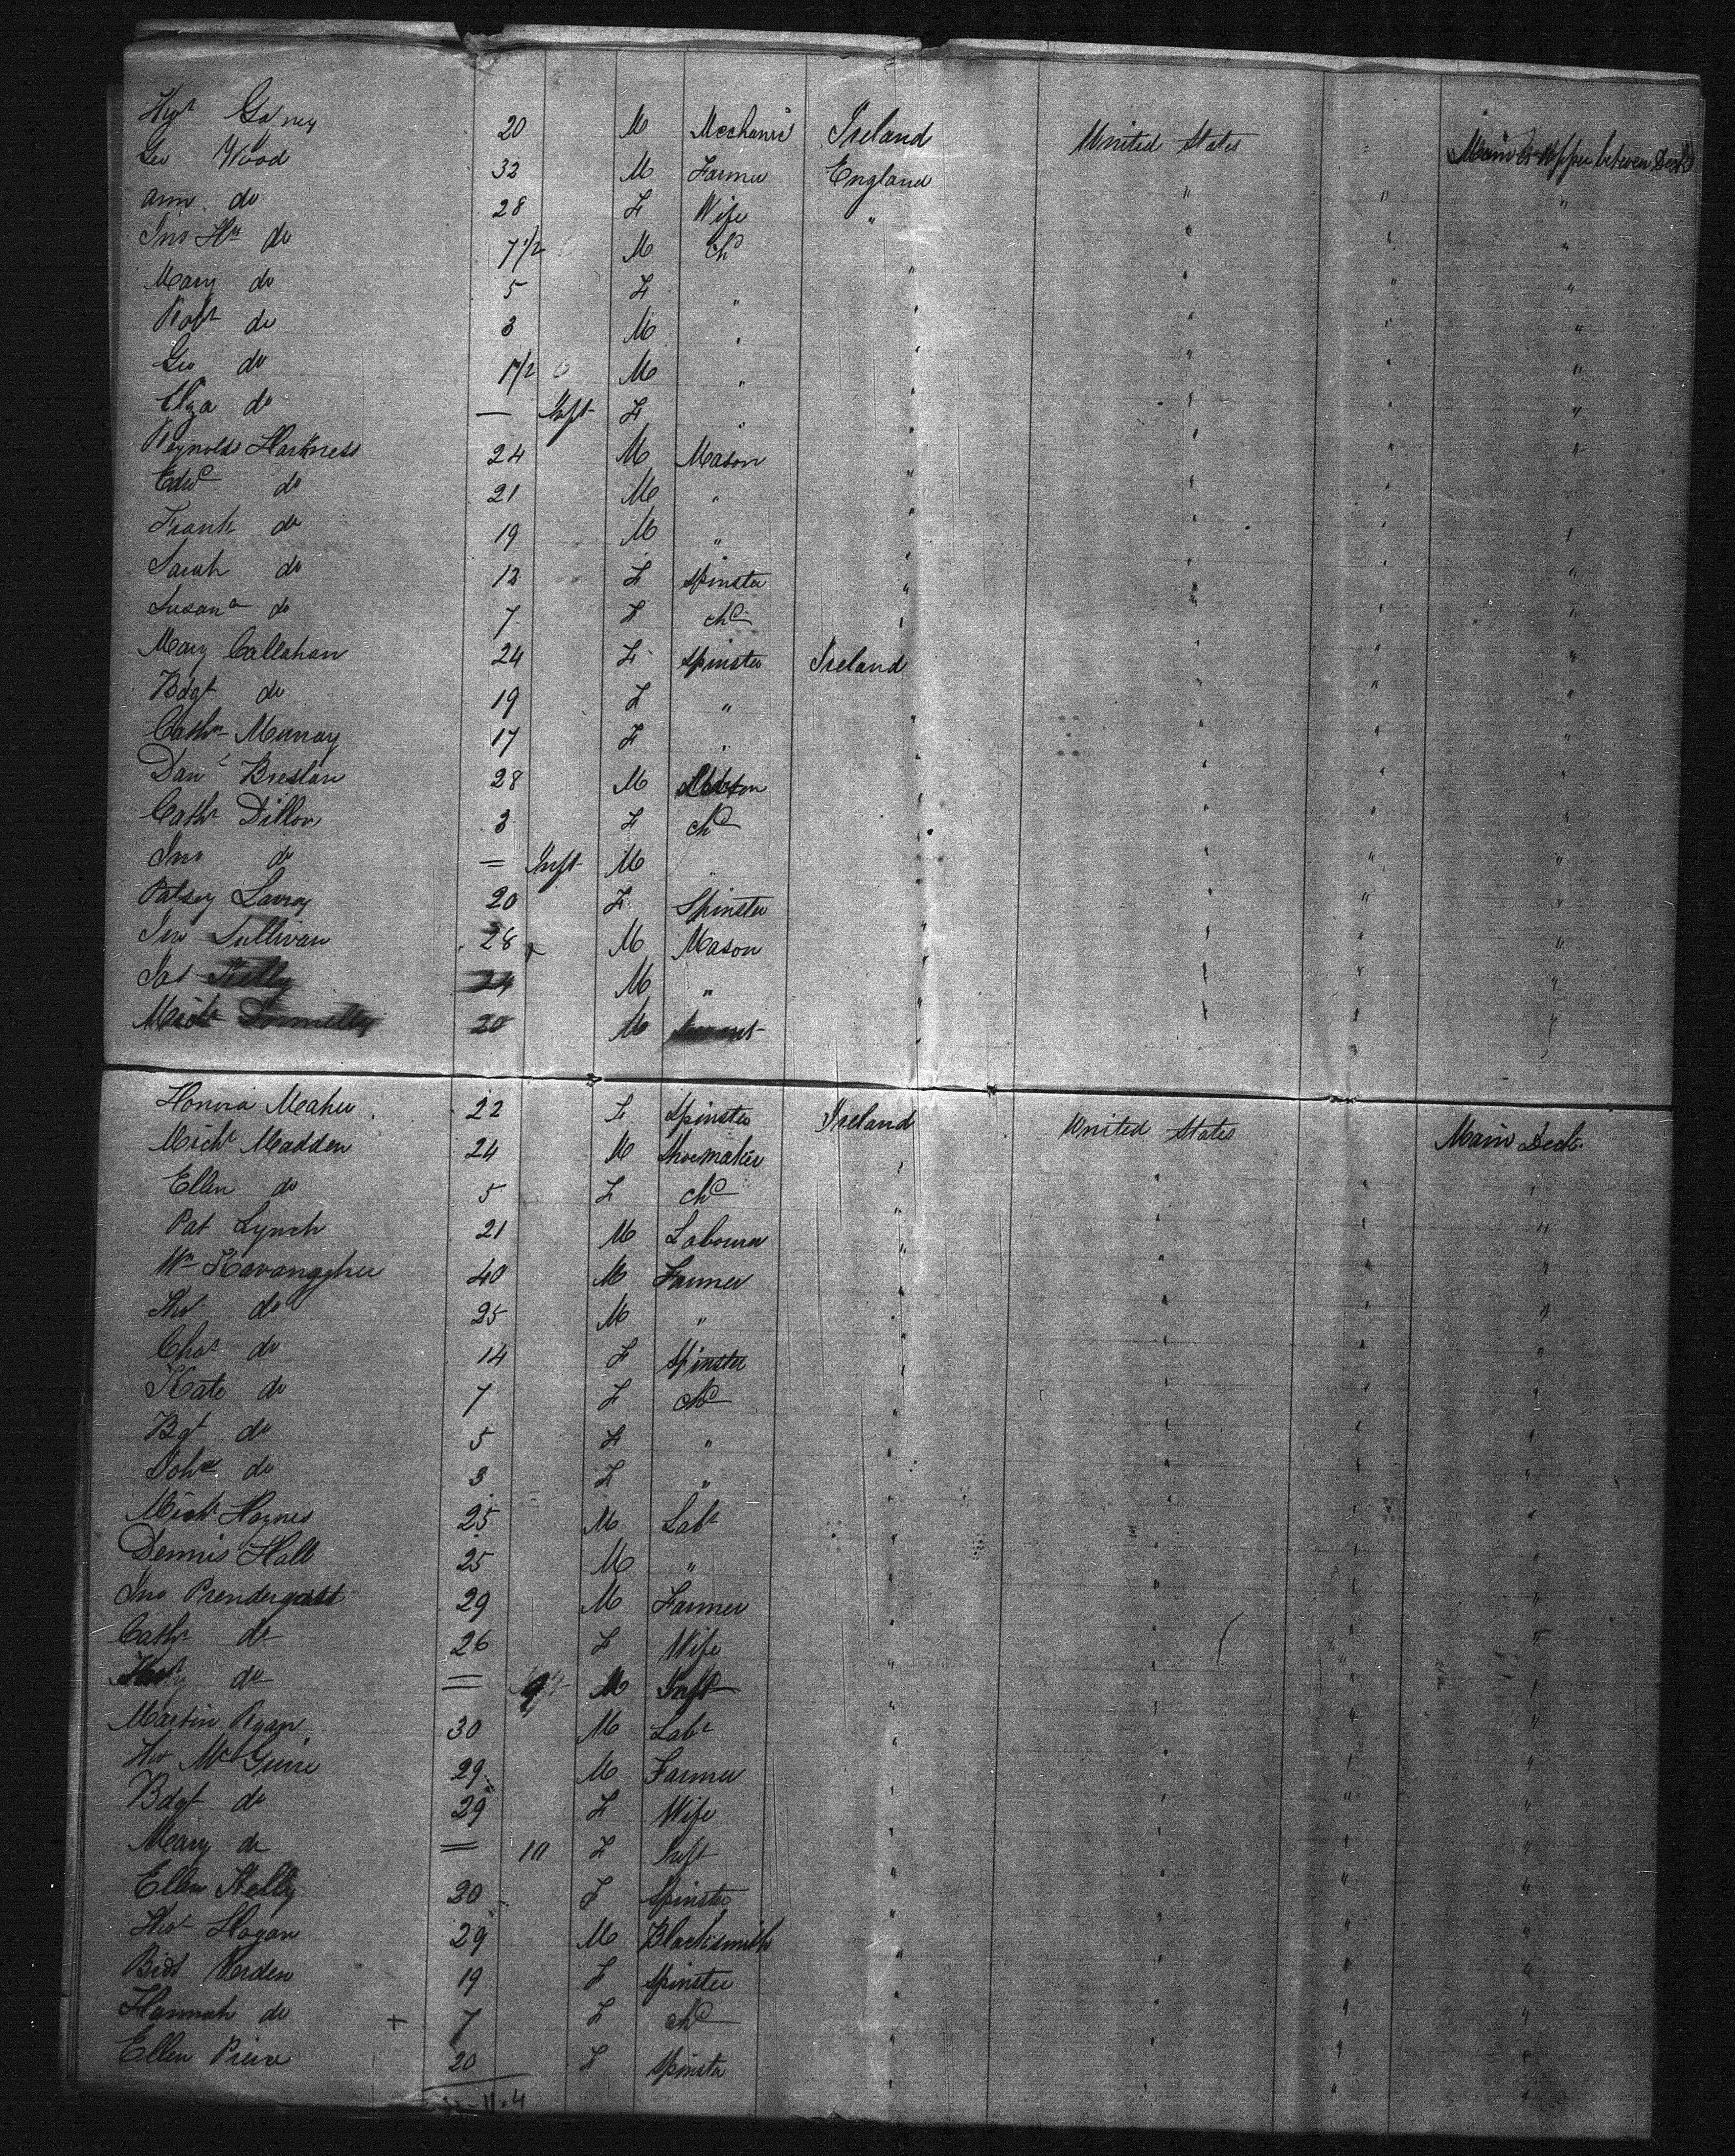 Hugh 20 M Mechanic Ireland United States Main & Upper between Decks
Geo Wood 32 M Farmer England " " "
Ann do 28 F Wife " " " "
Jno Hy do 7 1/2 M Chd " " " "
Mary do 5 F " " " " "
Robt do 3 M " " " " "
Geo do 1 1/2 M " " " " "
Eliza do — Inft F " " " " "
Reynolds Harkness 24 M Mason " " " "
Edwd do 21 M " " " " "
Frank do 19 M " " " " "
Sarah do 12 F Spinster " " " "
Susana do 7 F Chd " " " "
Mary Callahan 24 F Spinster Ireland " " "
Bdgt do 19 F " " " " "
Cathn Murray 17 F " " " " "
Danl Breslan 28 M " " " "
Cathn Dillon 3 F Chd " " " "
Jno do = Inft M " " " " "
Patsey 20 F Spinster " " " "
Jno Sullivan 28 M Mason " " " "
Pat Kelly 24 M " " " " "
Michl Donnelly 20 M " " " "
Honora Maher 22 F Spinster Ireland United States Main Deck
Michl Madden 24 M Shoemaker " " " "
Ellen do 5 F Chd " " " "
Pat Lynch 21 M Labourer " " " "
Wm Kavanagher 40 M Farmer " " " "
Thos do 25 M " " " " "
Chas do 14 F Spinster " " " "
Kate do 7 F Chd " " " "
Bgt do 5 F " " " " "
do 3 F " " " " "
Michl Haynes 25 M Labr " " " "
Dennis Hall 25 M " " " " "
Jno Prendergast 29 M Farmer " " " "
Cathn do 26 F Wife " " " "
do = 9 M Inft " " " "
Martin Ryan 30 M Labr " " " "
McGuire 29 M Farmer " " " "
Bdgt do 29 F Wife " " " "
Mary do = 10 F Inft " " " "
Ellen Kelly 20 F Spinster " " " "
Thos Hogan 29 M Blacksmith " " " "
Bidt Verden 19 F Spinster " " " "
Hannah do + 7 F Chd " " " "
Ellen 20 F Spinster " " " "